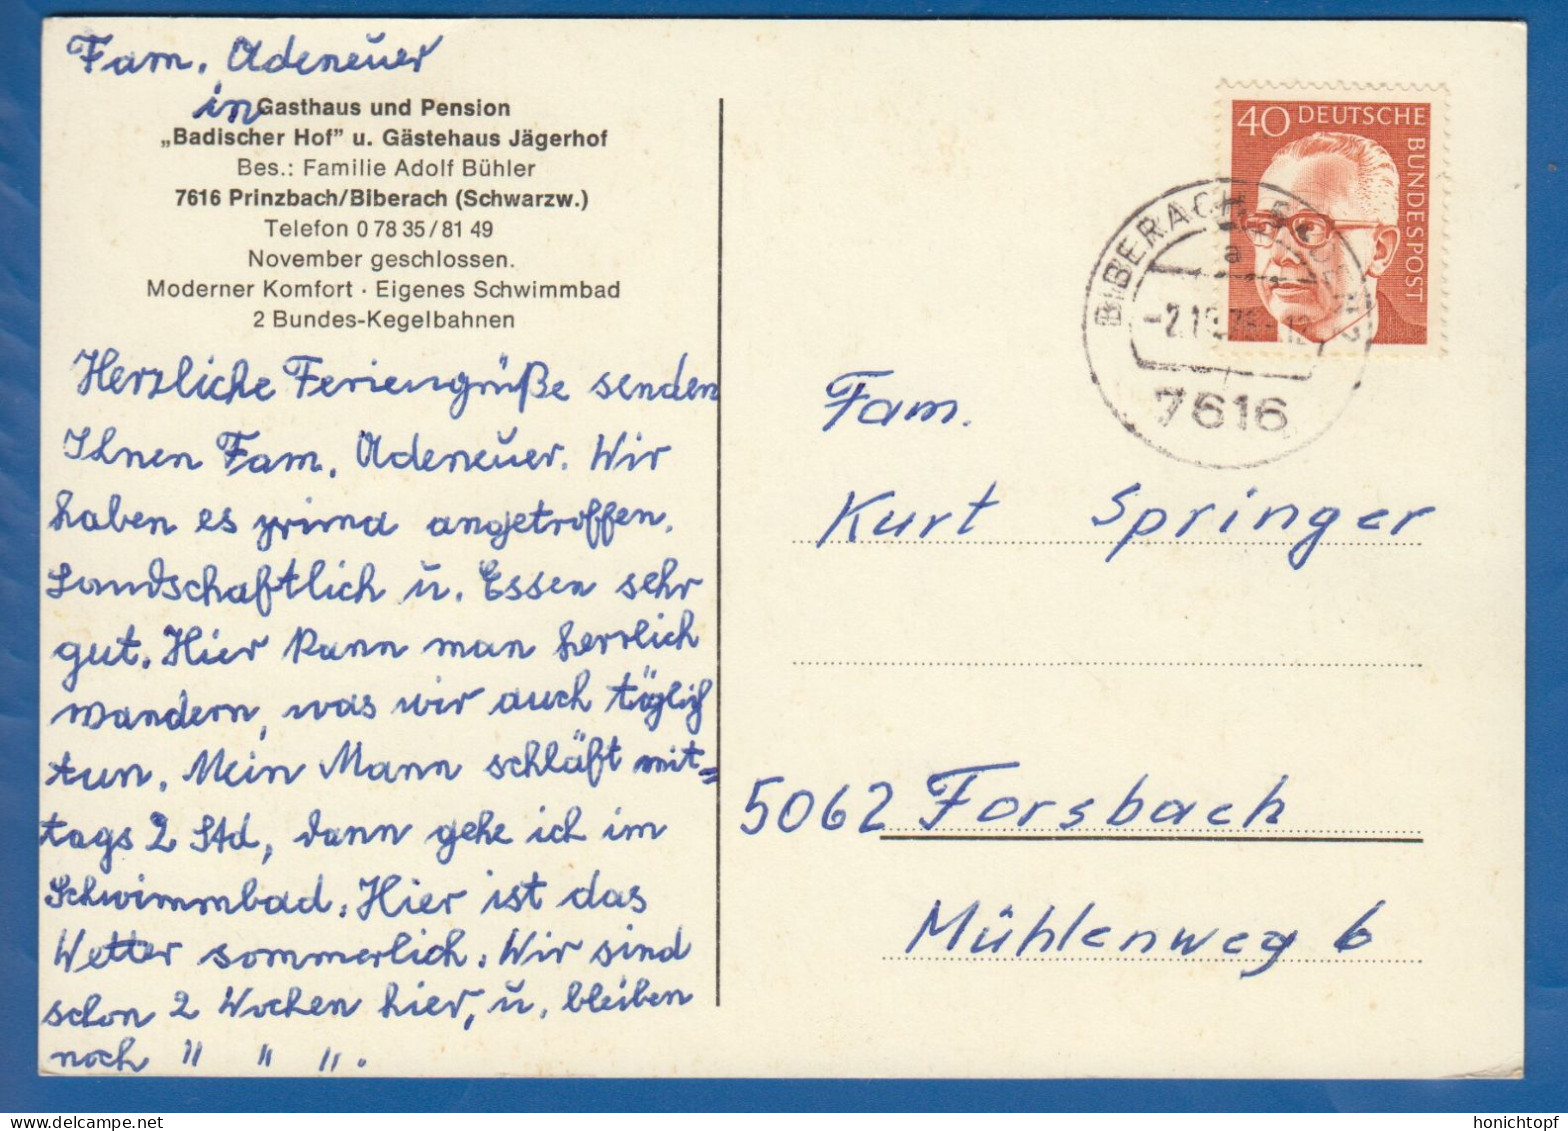 Fam. Adeneuer
in Gasthaus und Pension
„Badischer Hof" u. Gästehaus Jägerhof
Bes.: Familie Adolf Bühler
7616 Prinzbach/Biberach (Schwarzw.)
Telefon 0 78 35 / 81 49
November geschlossen.
Moderner Komfort · Eigenes Schwimmbad
2 Bundes-Kegelbahnen
Herzliche Feriengrüße senden
Ihnen Fam. Adeneuer. Wir
haben es prima angetroffen.
Landschaftlich u. Essen sehr
gut. Hier kann man herrlich
wandern, was wir auch täglich
tun. Mein Mann schläft mit=
tags 2 Std, dann gehe ich im
Schwimmbad. Hier ist das
Wetter sommerlich. Wir sind
schon 2 Wochen hier, u. bleiben
noch " " ".
40 DEUTSCHE
BUNDESPOST
BIBERACH
a
7616
Fam.
Kurt Springer
5062 Forsbach
Mühlenweg 6
honichtopf